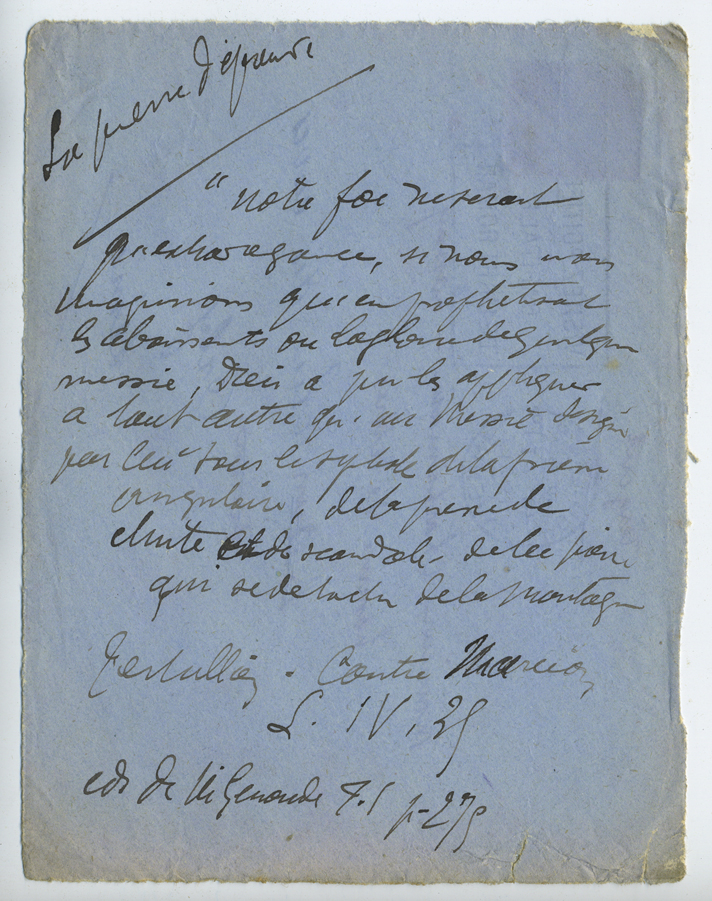 La pierre d'épreuve
"Notre foi ne serait
qu'extravagance, si nous nous
imaginions qu'en prophétisant
les abaissements ou la gloire de quelque
messie, Dieu a pu les appliquer
a tout autre qu'au Messie désigné
par lui sous le symbole de la pierre
angulaire, de la pierre de
chute et de scandale, de la pierre
qui se detacha de la montagne
Tertullien - Contre Marcion
L. IV, 25
eds de M. Genoude T. 1 p. 275